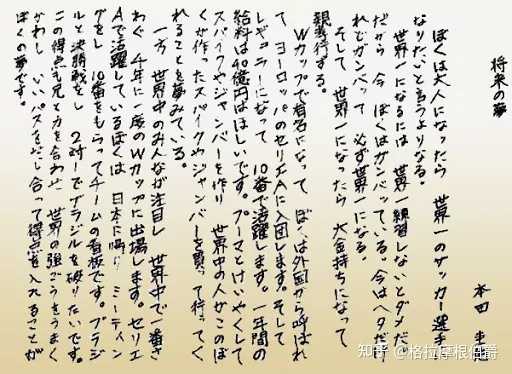 将来の夢
本田 圭佑
ぼくは大人になったら 世界一のサッカー選手に
なりたいと言うよりなる。
世界一になるには 世界一練習しないとダメだ。
だから 今 ぼくはガンバッている。今はヘタだけ
れどガンバって 必ず世界一になる。
そして 世界一になったら 大金持ちになって
親孝行する。
Wカップで有名になって ぼくは外国から呼ばれ
て ヨーロッパのセリエAに入団します。そして
レギュラーになって 10番で活躍します。一年間の
給料は40億円はほしいです。プーマとけいやくして
スパイクやジャンバーを作り 世界中の人がこのぼ
くが作ったスパイクやジャンバーを買って行ってく
れることを夢みている。
一方 世界中のみんなが注目し 世界中で一番さ
わぐ 4年に一度のWカップに出場します。セリエ
Aで活躍しているぼくは 日本に帰り ミーティン
グをし 10番をもらってチームの看板です。ブラジ
ルと決勝戦をし 2対1でブラジルを破りたいです。
この得点も兄と力を合わせ 世界の強ごうをうまく
かわし いいパスをだし合って得点を入れることが
ぼくの夢です。
知乎 @格拉摩根伯爵